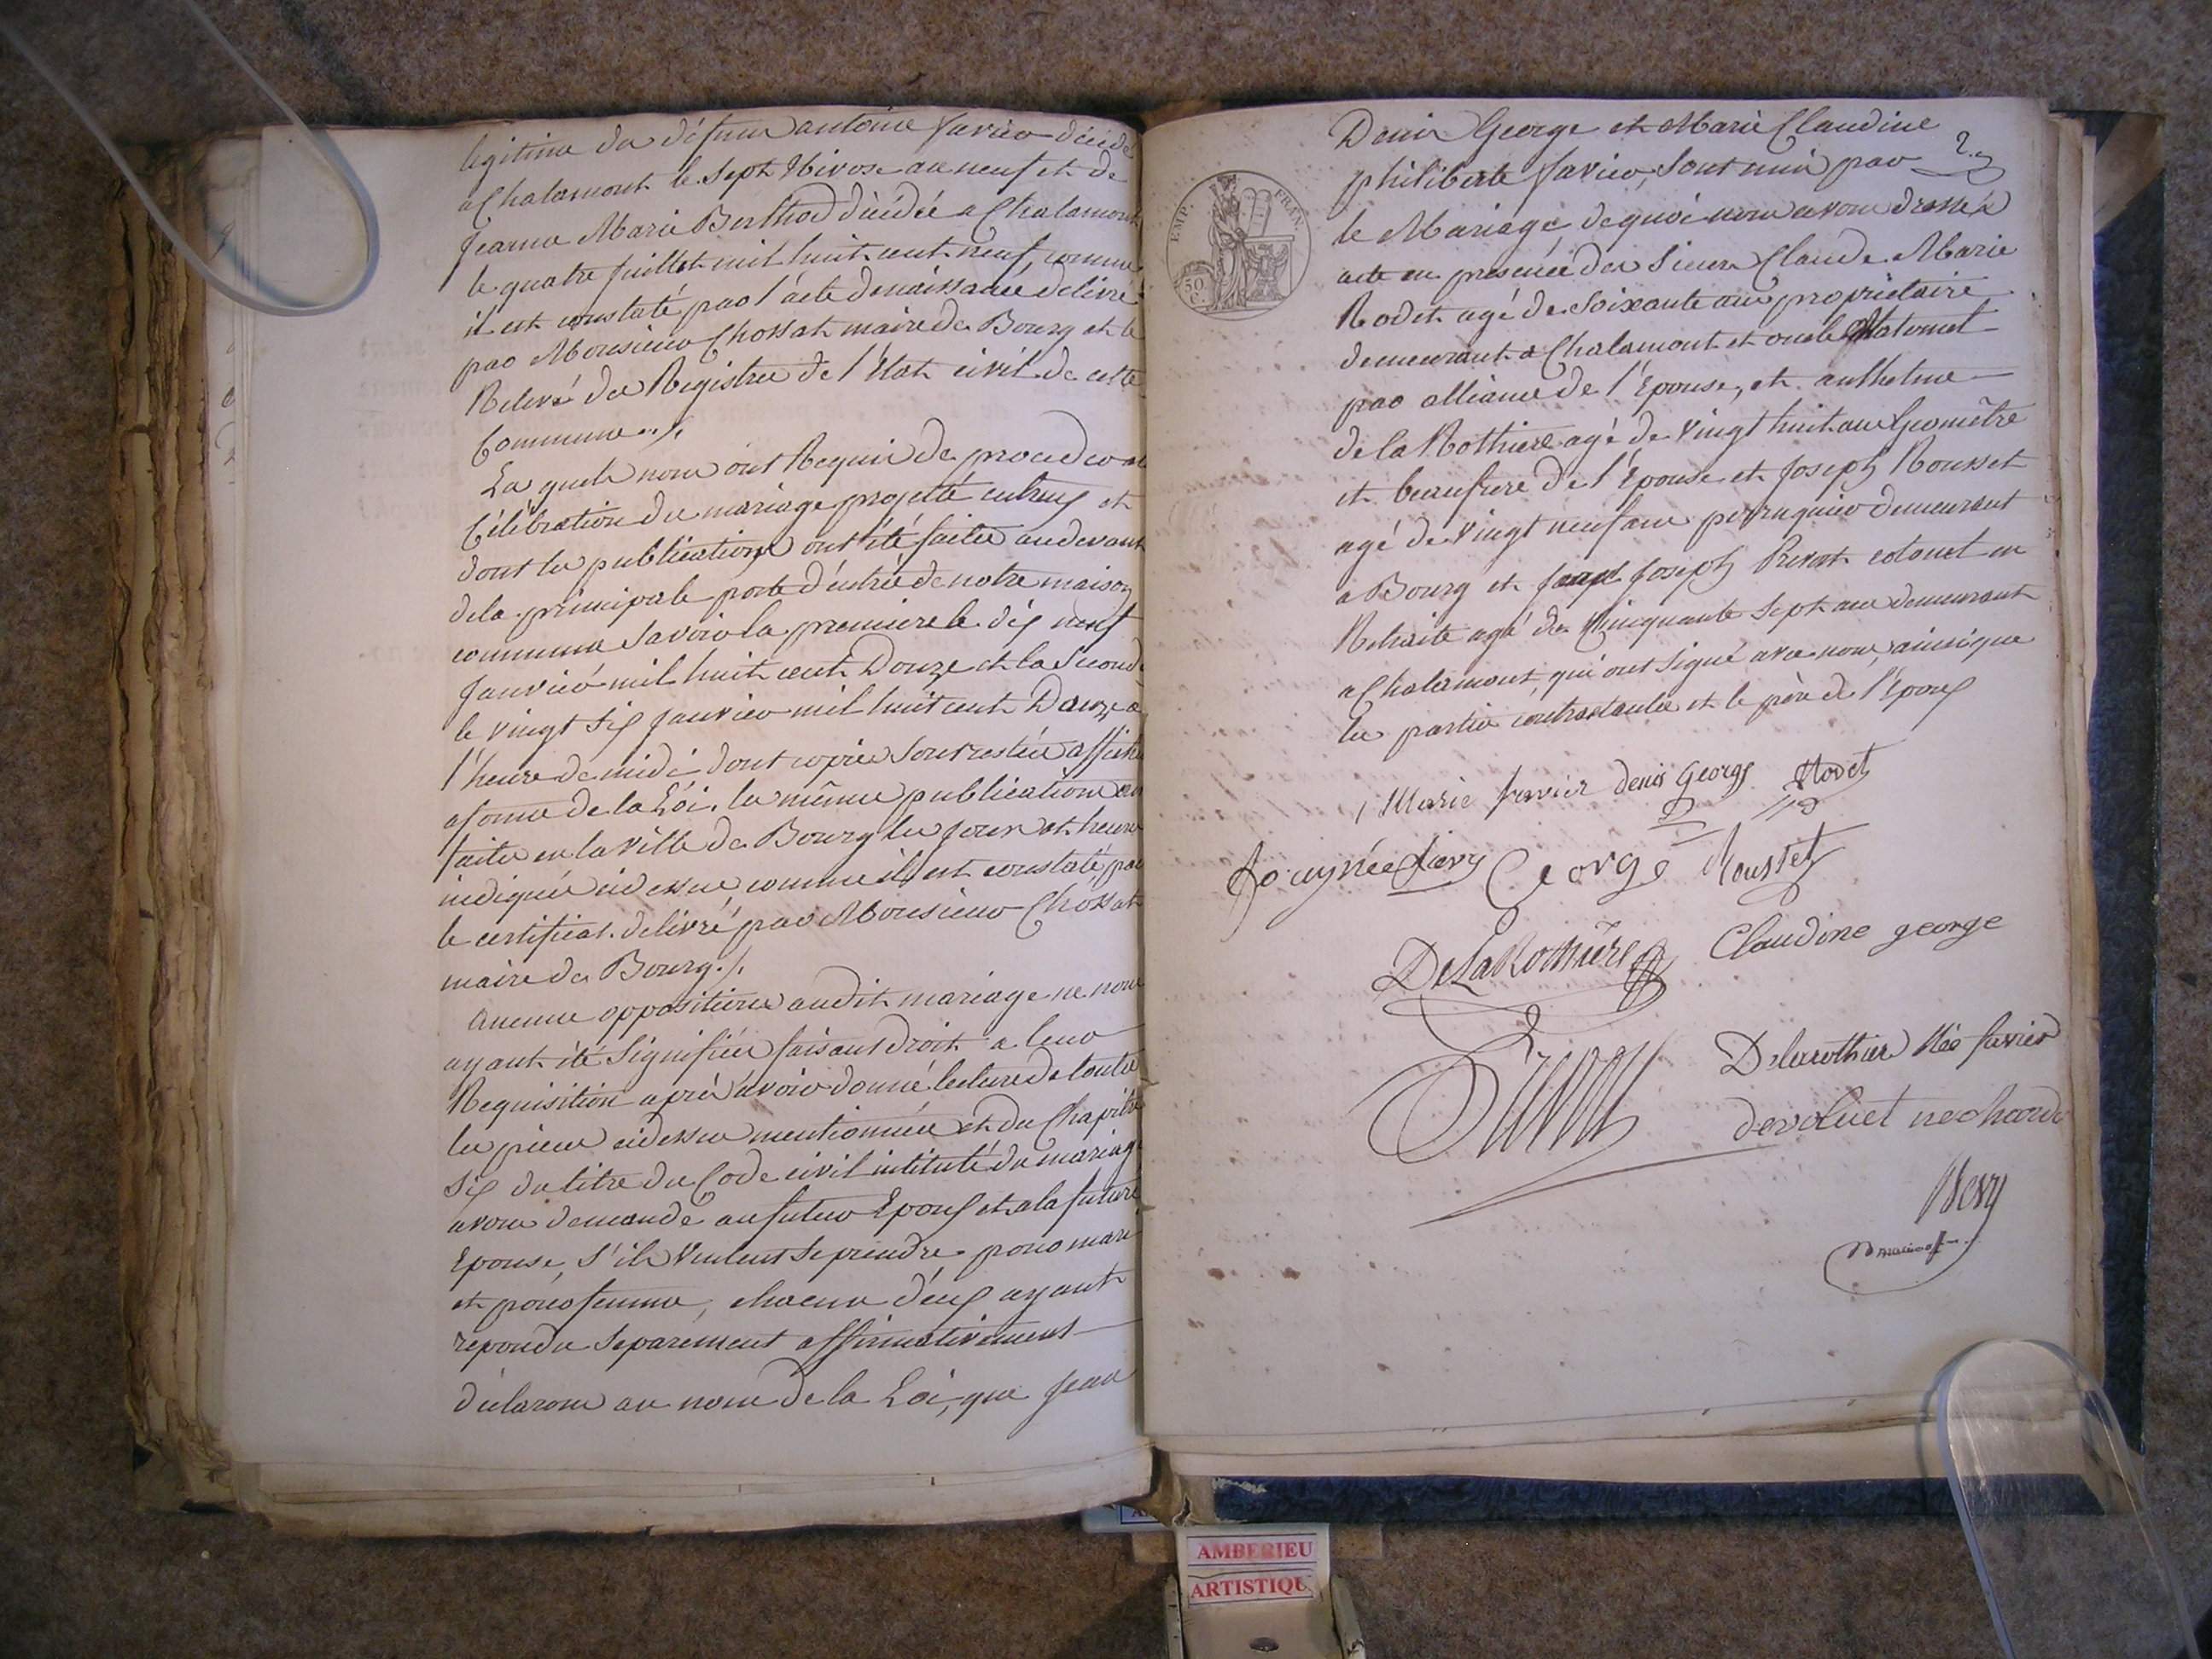 legitime du défunt antoine favier décédé
a Chalamont le sept Nivose an neuf et de
jeanne Marie Berthod décédée a Chalamont
le quatre juillet mil huit cent neuf comme
il est constaté par l'acte denaissance delivré
par Monsieur Chossat maire de Bourg et le
Relevé des Registres de l'état civil de cette
Commune ./.
Les quels nous ont Requis de proceder a la
Célébration du mariage projetté entreux et
dont les publications ont été faites audevant
dela principale porte d'entrée de notre maison
commune savoir la premiere le dix neuf
janvier mil huit cent Douze et la seconde
le vingt six janvier mil huit cent Douze a
l'heure de midi dont copies sont restées affichées
a forme de la Loi. les mêmes publications
faites en la ville de Bourg les jours et heures
indiqués cidessus, comme il est constaté par
le certificat delivré par Monsieur Chossat
maire de Bourg ./.
Aucune oppositions audit mariage ne nous
ayant été signifiées faisant droit a leur
Requisition après avoir donné lecture de toutes
les pieces cidessus mentionnées et du Chapitre
six du titre du Code civil intitulé du mariage
avons demandé au futur Epoux et ala future
Epouse, s'ils veulent se prendre pour mari
et pour femme, chacun d'eux ayant
repondu separement affirmativement
déclarons au nom de la Loi, que jean
Denis George et Marie Claudine
philiberte favier, sont unis par
le Mariage de quoi nous avons dressé
acte en presence des sieurs Claude Marie
Rodet agé de soixante ans propriétaire
demeurant a Chalamont et oncle Maternel
par alliance de l'Epouse, et anthelme
de la Rothiere agé de vingt huit ans Géomètre
et beaufrere de l'Epouse et joseph Rousset
agé de vingt neuf ans perruquier demeurant
a Bourg et joseph Privat colonel en
Retraite agé de Cinquante sept ans demeurant
a Chalamont, qui ont signé avec nous, ainsi que
les parties contractantes et le père de l'Epoux
Marie favier denis George Rodet
George Rousset
DeLaRothiere Claudine george
Delarothier Née favier
EMP. FRAN.
50 C.
AMBERIEU
ARTISTIQU